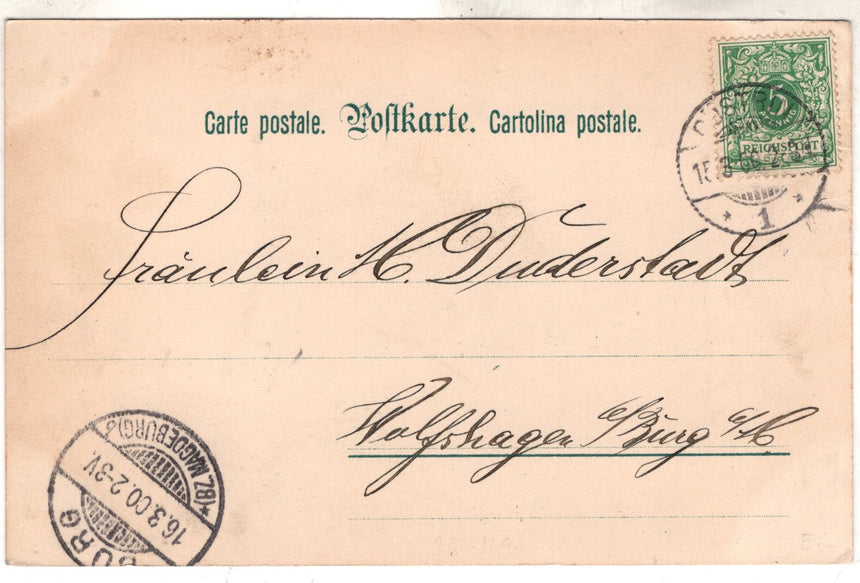 Carte postale. Postkarte. Cartolina postale.
5
REICHSPOST
15.3.00
1
Fräulein H. Duderstadt
Wolfshagen b/Burg
BURG
*(BZ. MAGDEBURG)*
16.3.00.2-3V.
5.-